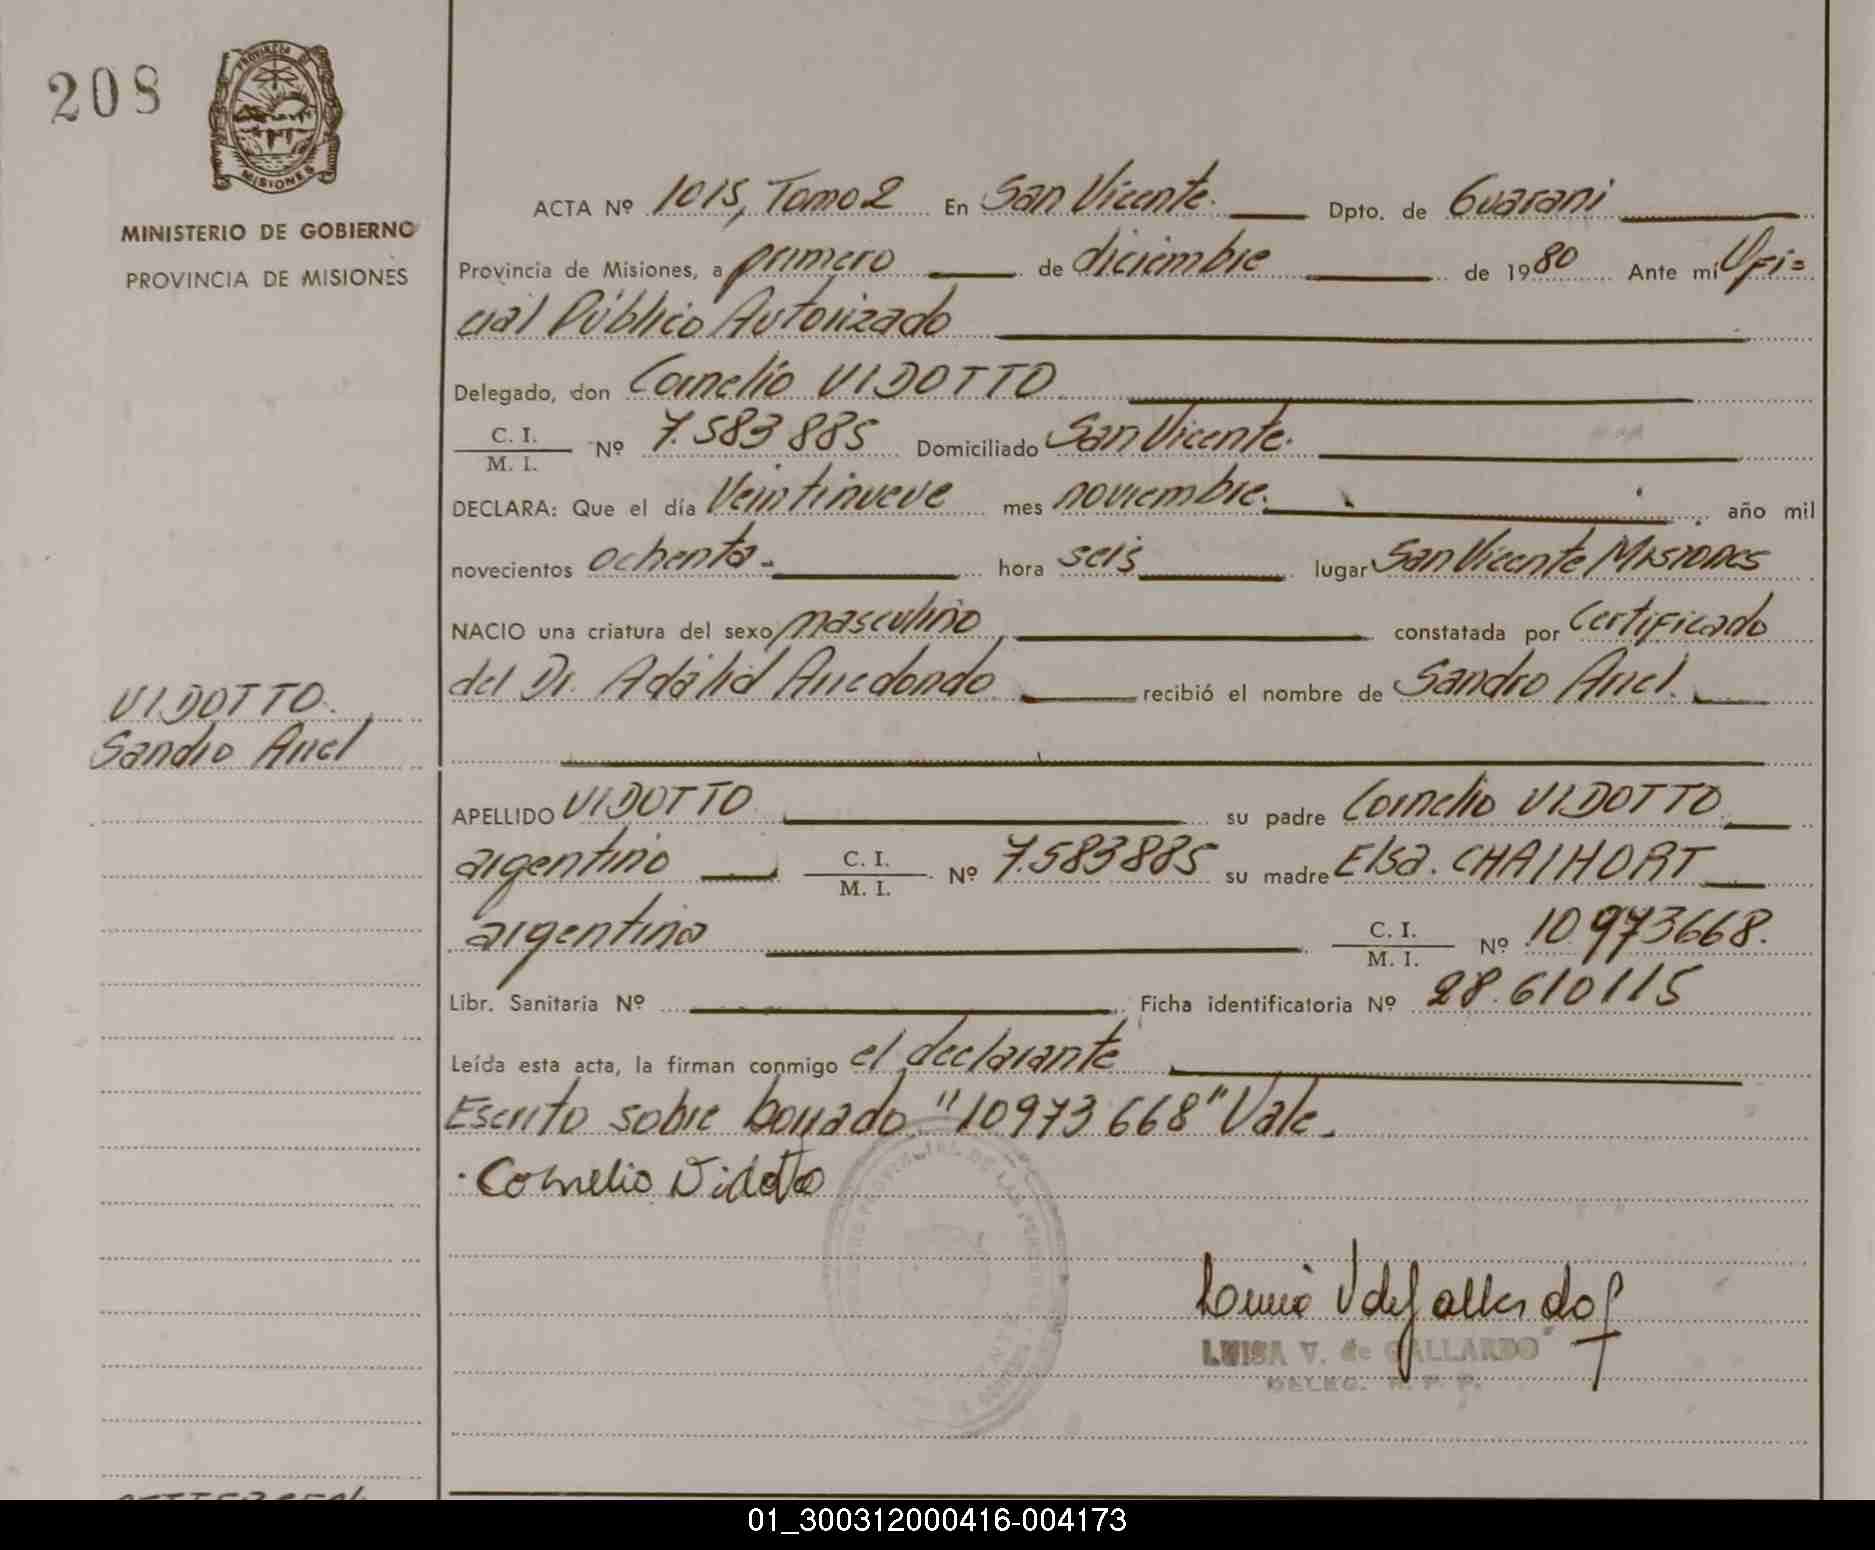 208
PROVINCIA DE
MISIONES
MINISTERIO DE GOBIERNO
PROVINCIA DE MISIONES
VIDOTTO.
Sandro Ariel
ACTA Nº 1015, Tomo 2 En San Vicente. Dpto. de Guarani
Provincia de Misiones, a primero de diciembre de 1980 Ante mí Ofi=
cial Público Autorizado
Delegado, don Cornelio VIDOTTO
C. I.
M. I.
Nº 7.583 885 Domiciliado San Vicente.
DECLARA: Que el día Veintinueve mes noviembre. año mil
novecientos ochenta- hora seis lugar San Vicente Misiones
NACIO una criatura del sexo masculino constatada por Certificado
del Dr. Adálid Arredondo recibió el nombre de Sandro Ariel.
APELLIDO VIDOTTO su padre Cornelio VIDOTTO
argentino C. I. M. I. Nº 7.583885 su madre Elsa. CHAIHORT
argentina C. I. M. I. Nº 10.973668.
Libr. Sanitaria Nº Ficha identificatoria Nº 28.610115
Leída esta acta, la firman conmigo el declarante
Escrito sobre borrado "10973.668" Vale.
Cornelio Vidotto
Luisa V de Gallardo
LUISA V. de GALLARDO
DELEG. R. P. P.
01_300312000416-004173